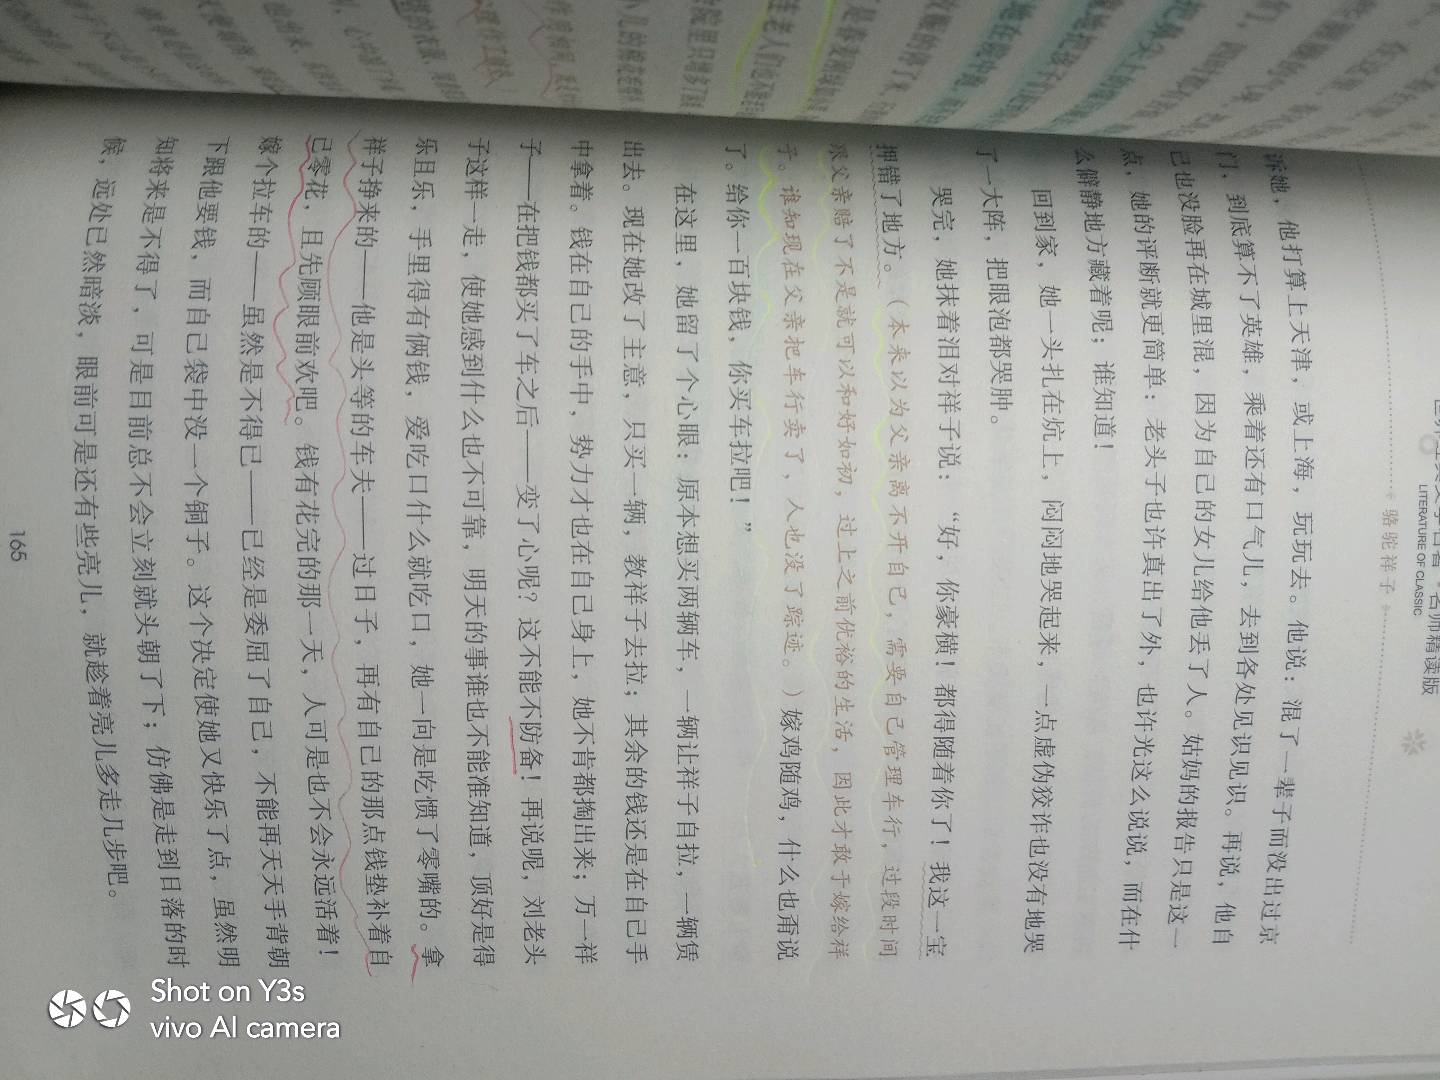 名师精读版
LITERATURE OF CLASSIC
骆驼祥子
诉她，他打算上天津，或上海，玩玩去。他说：混了一辈子而没出过京
门，到底算不了英雄，乘着还有口气儿，去到各处见识见识。再说，他自
己也没脸再在城里混，因为自己的女儿给他丢了人。姑妈的报告只是这一
点，她的评断就更简单：老头子也许真出了外，也许光这么说说，而在什
么僻静地方藏着呢；谁知道！
回到家，她一头扎在炕上，闷闷地哭起来，一点虚伪狡诈也没有地哭
了一大阵，把眼泡都哭肿。
哭完，她抹着泪对祥子说：“好，你豪横！都得随着你了！我这一宝
押错了地方。（本来以为父亲离不开自己，需要自己管理车行，过段时间
跟父亲赔了不是就可以和好如初，过上之前优裕的生活，因此才敢于嫁给祥
子。谁知现在父亲把车行卖了，人也没了踪迹。）嫁鸡随鸡，什么也甭说
了。给你一百块钱，你买车拉吧！”
在这里，她留了个心眼：原本想买两辆车，一辆让祥子自拉，一辆赁
出去。现在她改了主意，只买一辆，教祥子去拉；其余的钱还是在自己手
中拿着。钱在自己的手中，势力才也在自己身上，她不肯都掏出来；万一祥
子——在把钱都买了车之后——变了心呢？这不能不防备！再说呢，刘老头
子这样一走，使她感到什么也不可靠，明天的事谁也不能准知道，顶好是得
乐且乐，手里得有俩钱，爱吃口什么就吃口，她一向是吃惯了零嘴的。拿
祥子挣来的——他是头等的车夫——过日子，再有自己的那点钱垫补着自
己零花，且先顾眼前欢吧。钱有花完的那一天，人可是也不会永远活着！
嫁个拉车的——虽然是不得已——已经是委屈了自己，不能再天天手背朝
下跟他要钱，而自己袋中没一个铜子。这个决定使她又快乐了点，虽然明
知将来是不得了，可是目前总不会立刻就头朝了下；仿佛是走到日落的时
候，远处已然暗淡，眼前可是还有些亮儿，就趁着亮儿多走几步吧。
165
Shot on Y3s
vivo AI camera